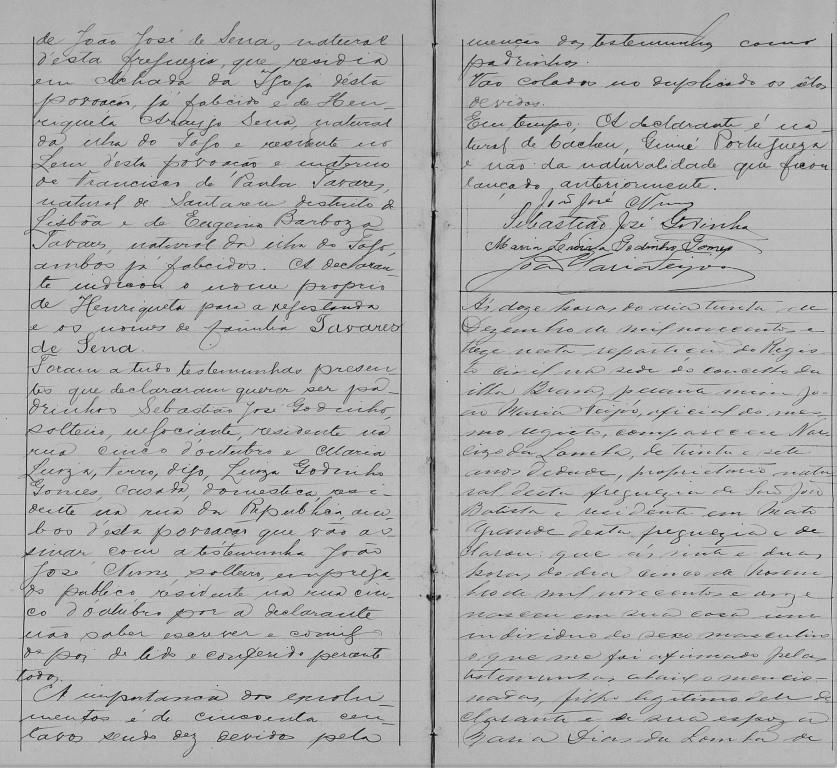 de João José de Sena, natural
d'esta freguezia, que residia
em Achada da Igreja d'esta
povoação, já falecido e de Hen-
riqueta Araujo Sena, natural
da ilha do Fogo e residente no
Lem d'esta povoação e materno
de Francisco de Paula Tavares,
natural de Santarem districto de
Lisbôa e de Eugenia Barboza
Tavares, natural da ilha do Fogo,
ambos já falecidos. A declaran-
te indicou o nome proprio
de Henriqueta para a registanda
e os nomes de familia Tavares
de Sena.
Foram a tudo testemunhas presen-
tes que declararam querer ser pa-
drinhos Sebastião José Godinho,
solteiro, negociante, residente na
rua cinco d'outubro e Maria
Luiza, digo, Luiza Godinho
Gomes, casada, domestica, resi-
dente na rua da Republica, am-
bos d'esta povoação que vão as-
sinar com a testemunha João
José Nunes solteiro, emprega-
do publico, residente na rua cin-
co d'outubro por a declarante
não saber escrever e comigo
de pois de lido e conferido perante
todos.
A importancia dos emolu-
mentos é de cincoenta cen-
tavos sendo dez devidos pela
menção das testemunhas como
padrinhos.
Vão colados no duplicado os sêlos
devidos.
Em tempo; A declarante é na-
tural de Cacheu, Guiné Portugueza
e não da naturalidade que ficou
lançado anteriormente.
João José Nunes
Sebastião José Godinho
Maria Luiza Godinho Gomes
João
Ás doze horas do dia trinta de
Dezembro de mil novecentos e
treze nesta repartição do Regis-
to civil na sede do concelho da
ilha Brava, perante mim Jo-
ão Maria Feijóo, oficial do mes-
mo registo, compareceu
da Lomba, de trinta e sete
anos d'edade, proprietario, natu-
ral desta freguezia de São João
Batista e residente em Mato
Grande desta freguezia e de-
clarou: que ás vinte e duas
horas do dia cinco de Novem-
bro de mil novecentos e onze
nasceu em sua casa um
individuo do sexo masculino
o que me foi afirmado pelas
testemunhas abaixo mencio-
nadas, filho legitimo dele de-
clarante e de sua espoza
Maria Dias da Lomba de